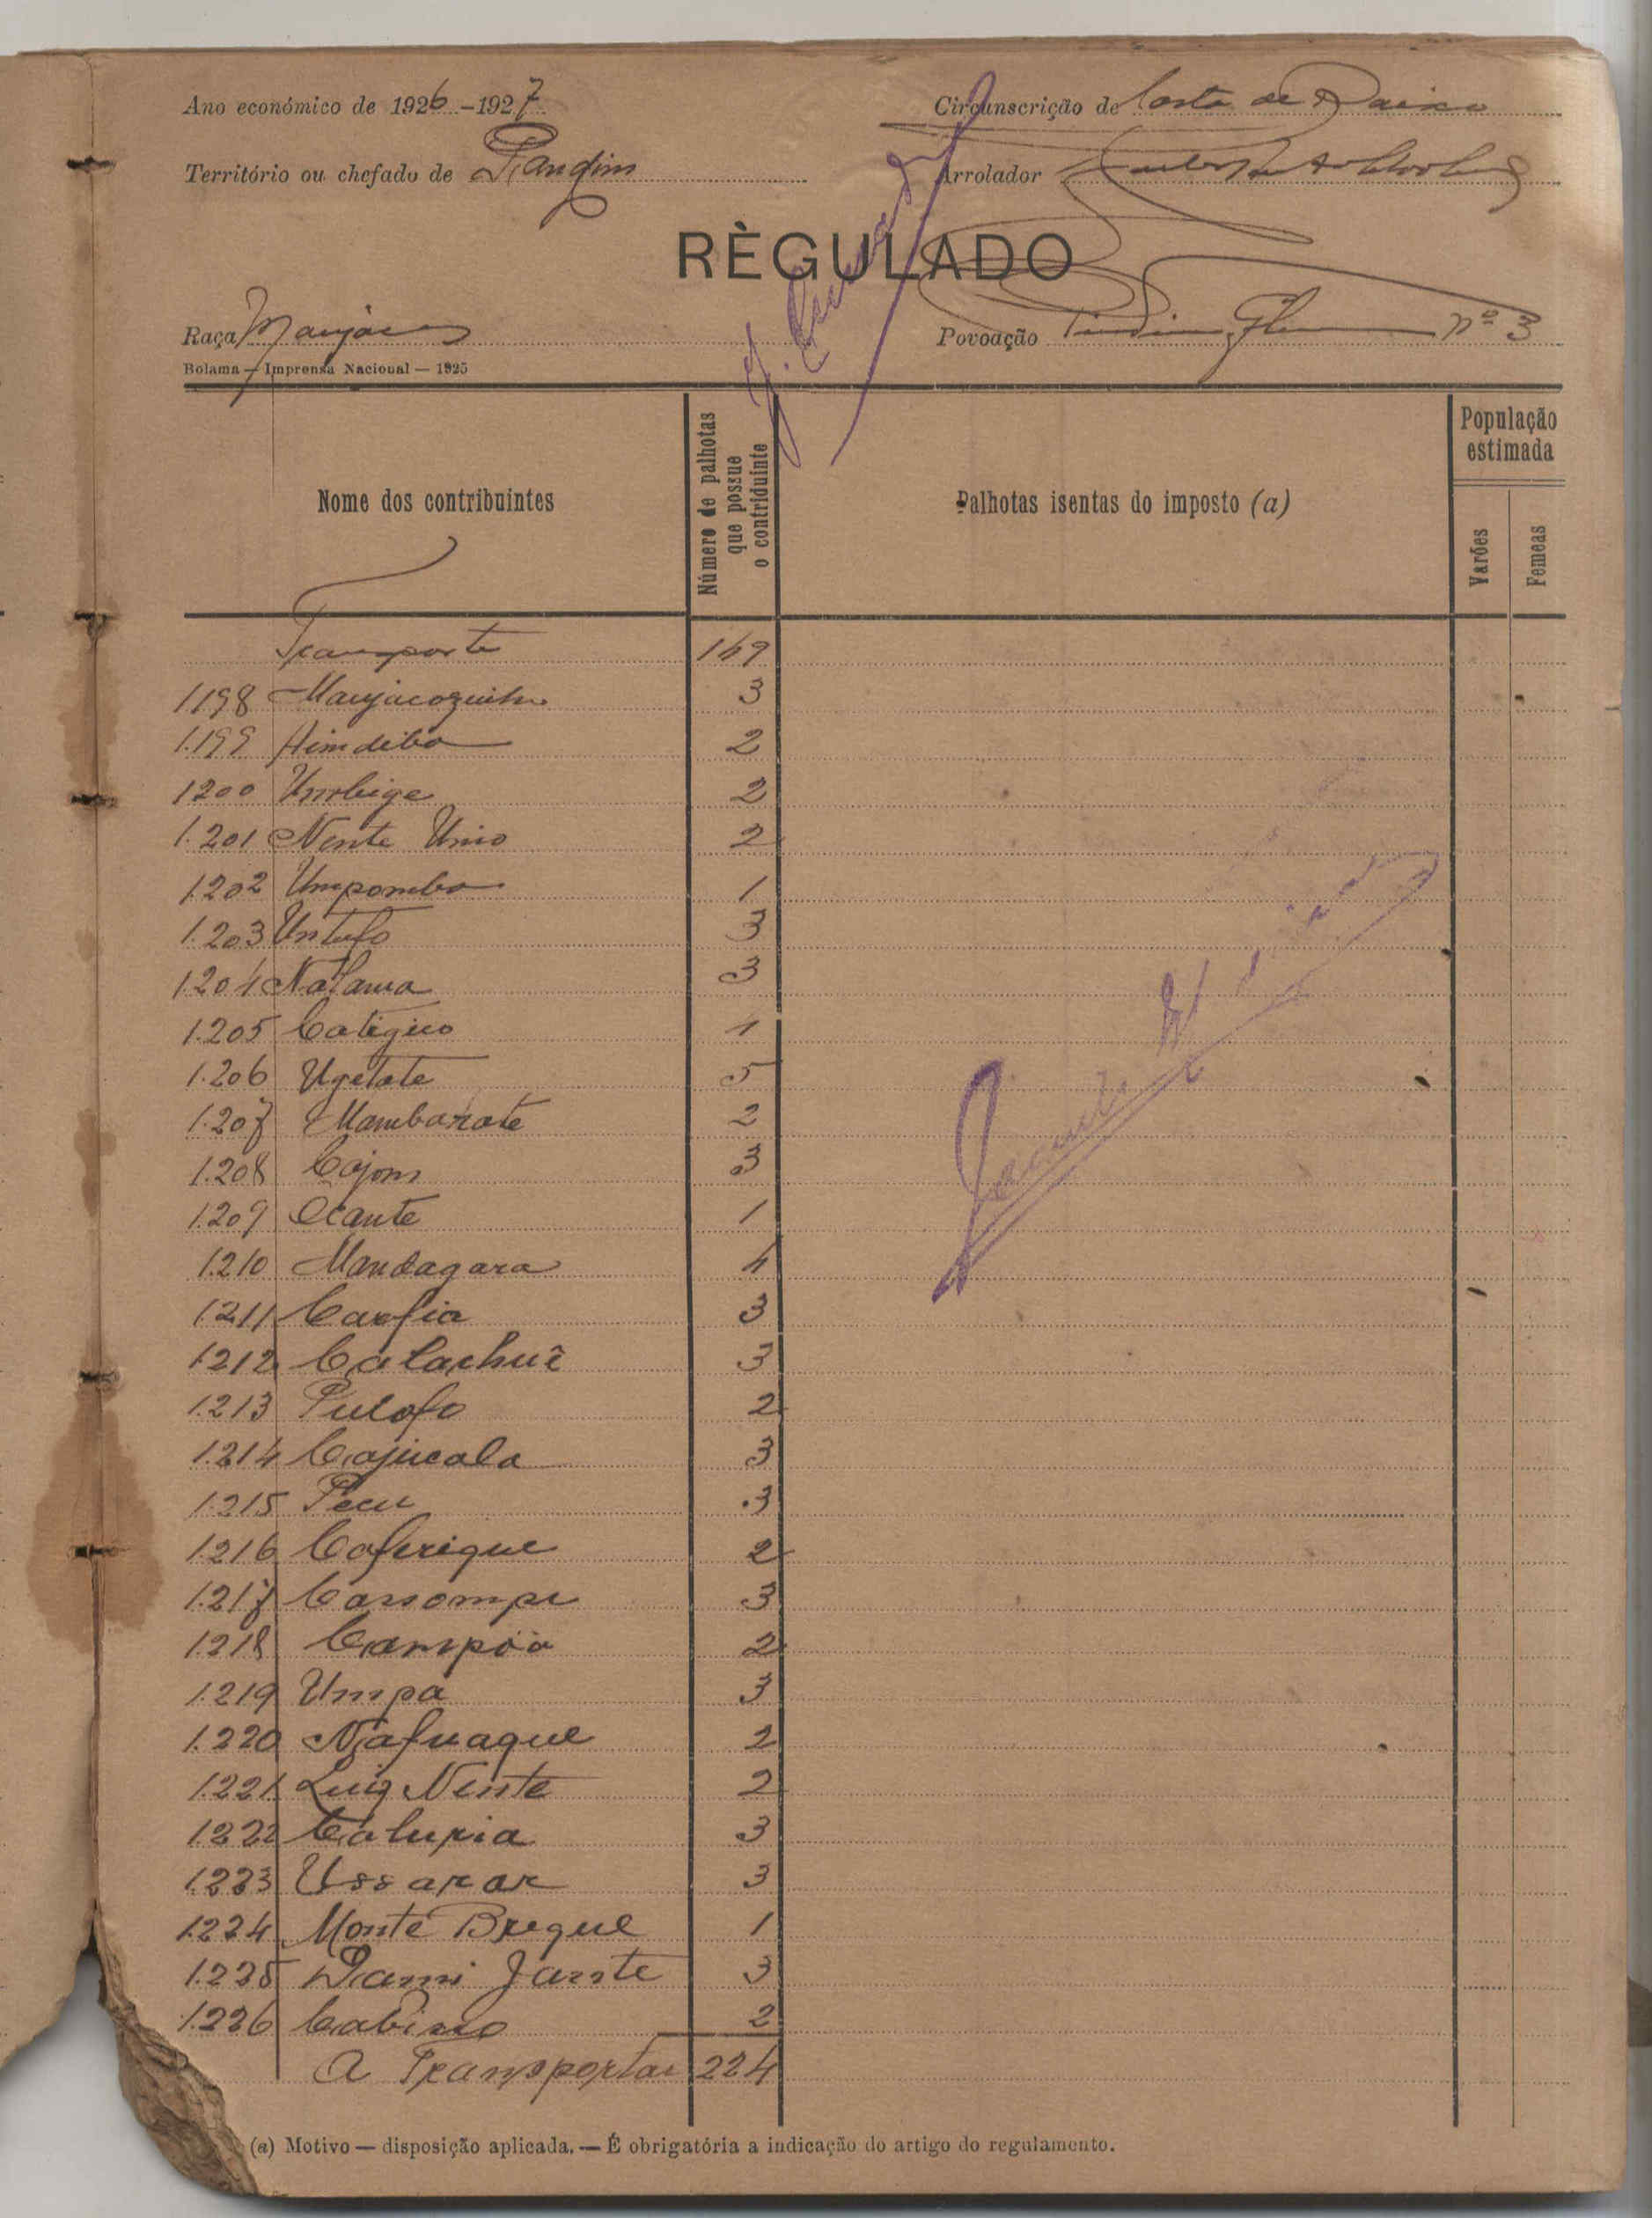 Ano económico de 1926-1927
Circunscrição de Costa de Baixo
Território ou chefado de Pandim
Arrolador
RÈGULADO
Raça Manjaco
Povoação nº 3
Bolama — Imprensa Nacional — 1925
Nome dos contribuintes
Número de palhotas que possue o contriduinte
Palhotas isentas do imposto (a)
População estimada
Varões
Femeas
Transporte 149
1198 Manjacozinho 3
1.199 Himdibo 2
1200 2
1.201 Nente Unio 2
1.202 Umpombo 1
1.203 Untufo 3
1.204 Natama 3
1.205 1
1.206 Ugetate 5
1.207 Mambarate 2
1.208 Cajom 3
1.209 Ocante 1
1.210 Mandagara 4
1.211 Carfia 3
1212 Calachuê 3
1.213 Pulofo 2
1.214 Cajucala 3
1.215 Pecu 3
1.216 Caferique 2
1.217 Cassompe 3
1.218 Campóo 2
1.219 Umpa 3
1.220 Nafuaque 2
1.221 Luiz Nente 2
1.222 Caluria 3
1.223 Ussarar 3
1.224 Monte Breque 1
1.225 Dami Jante 3
1.226 Cabiano 2
A Transportar 224
(a) Motivo — disposição aplicada. — É obrigatória a indicação do artigo do regulamento.